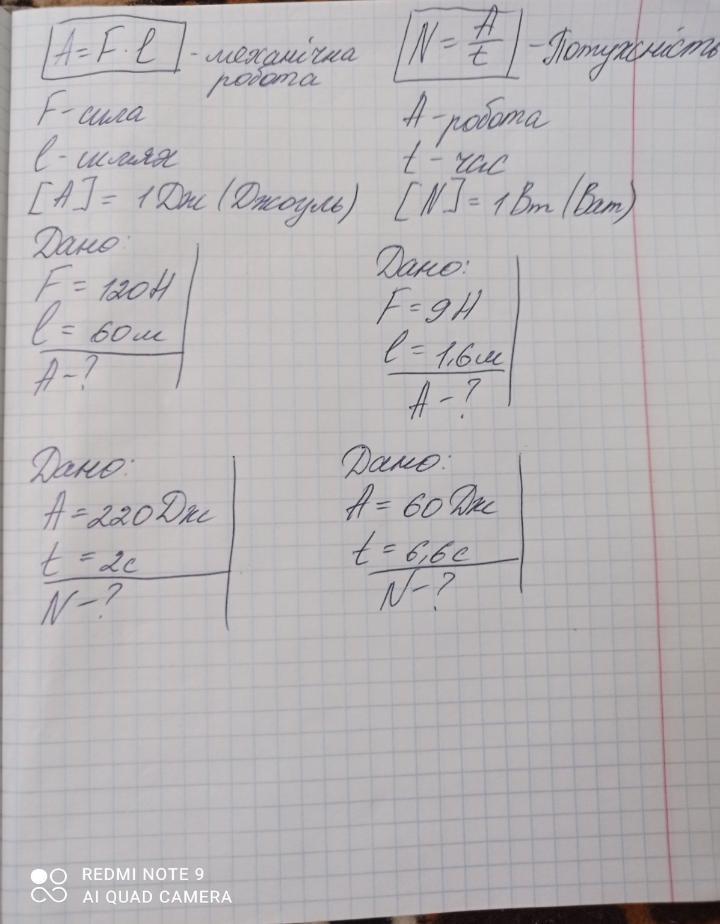 A = F · l - механічна
робота
F - сила
l - шлях
[A] = 1 Дж (Джоуль)
N = A/t - Потужність
A - робота
t - час
[N] = 1 Вт (Ват)
Дано:
F = 120 Н
l = 60 м
A - ?
Дано:
F = 9 Н
l = 1,6 м
A - ?
Дано:
A = 220 Дж
t = 2 с
N - ?
Дано:
A = 60 Дж
t = 6,6 с
N - ?
REDMI NOTE 9
AI QUAD CAMERA